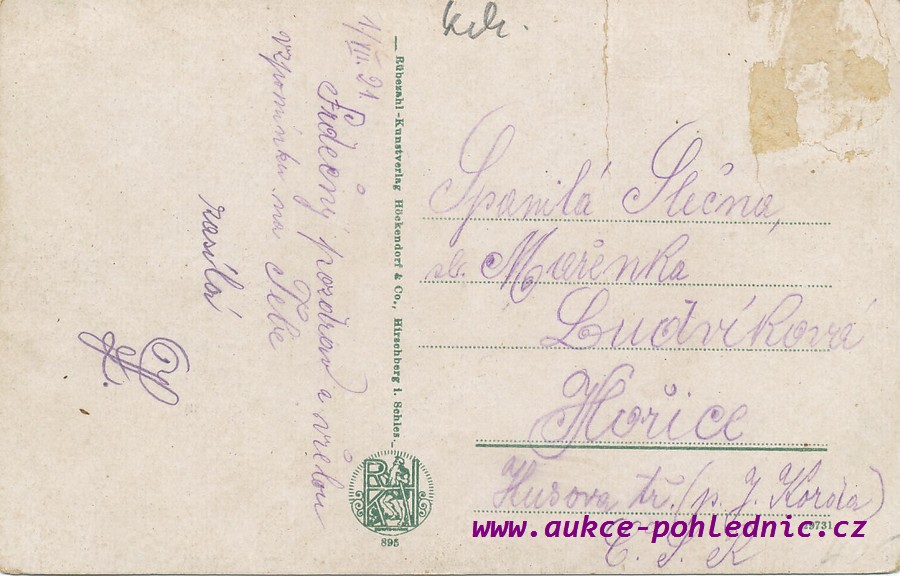 Kdr.
1/VII. 21.
Srdečný pozdrav a vřelou
vzpomínku na Tebe
zasílá
— Rübezahl-Kunstverlag Höckendorf & Co., Hirschberg i. Schles. —
R K
895
Spanilá Slečna,
sl. Mařenka
Ludvíková
Hořice
Husova tř. (p. J. Korda)
Č. S. R
www.aukce-pohlednic.cz